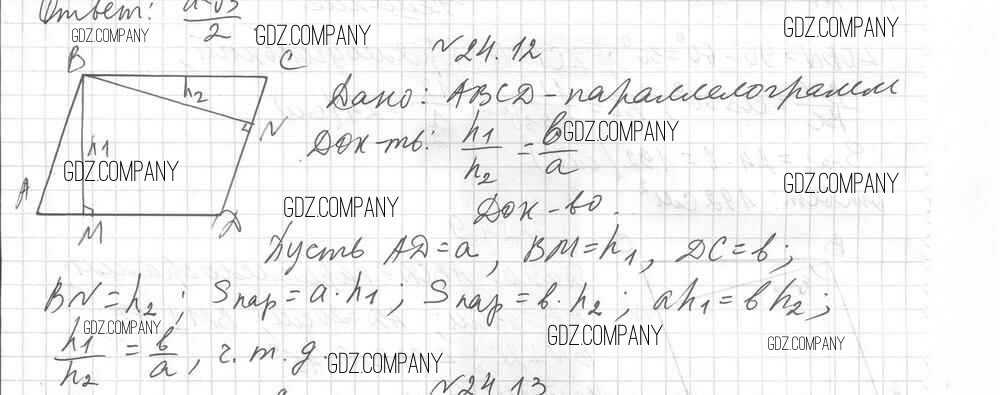 Ответ: a√3/2
GDZ.COMPANY
GDZ.COMPANY
GDZ.COMPANY
№24.12
B C
h2
Дано: ABCD - параллелограмм
N
Док-ть: h1/h2 = в/a
GDZ.COMPANY
h1
GDZ.COMPANY
GDZ.COMPANY
A
M D
GDZ.COMPANY
Док-во.
Пусть AD = a, BM = h1, DC = в;
BN = h2; Sпар = a·h1; Sпар = в·h2; ah1 = вh2;
GDZ.COMPANY
GDZ.COMPANY
GDZ.COMPANY
h1/h2 = в/a, ч.т.д.
GDZ.COMPANY
№24.13